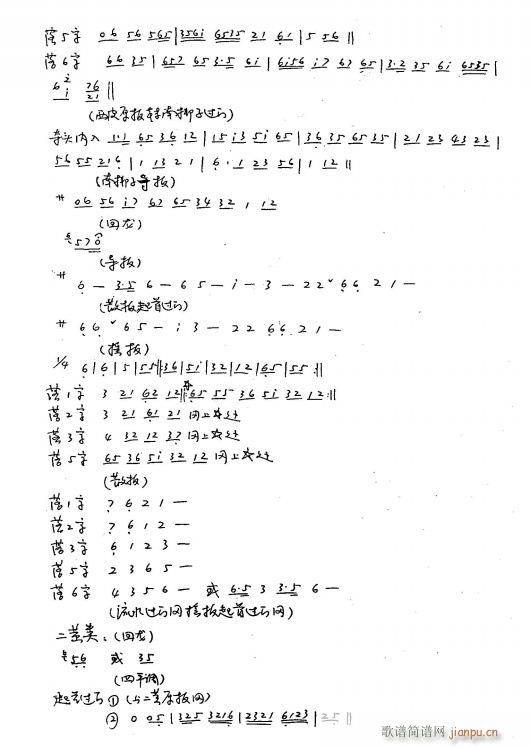 落5字 06 56 565 | 356i 6535 21 61 | 5 56 ‖
落6字 66 35 | 657 65 3.5 6i | 6i56 i7 67 65 | 3.2 35 6i 6535 |
6 2/i 76/21 ‖
夺头内入 1.1 65 36 12 | 15 i3 5i 65 | 36 35 65 35 | 21 23 43 23 |
56 55 21 6 | 1 13 21 | 6.1 23 56 | 1 12 ‖
(南梆子导板)
サ 06 56 i7 67 65 34 32 1 12
(回龙)
570
(导板)
サ 6 — 3.5 6 — 6 5 — i — 3 — 2 2 ˇ 6 6 2 1 —
(散板起首过门)
サ 6 6 ˇ 6 5 — i 3 — 2 2 6 6 2 1 —
(摇板)
1/4 6 | 6 | 5 | 55 ‖ 36 | 5i | 32 | 12 | 65 | 55 :‖
落1字 3 21 62 12 ‖: 65 55 36 5i 32 12 :‖
落2字 3 21 61 21 同上
落3字 4 32 12 37 同上
落5字 65 36 5i 32 12 同上
(散板)
落1字 7 6 2 1 —
落2字 7 6 1 2 —
落3字 6 1 2 3 —
落5字 2 3 6 5 —
落6字 4 3 5 6 — 或 6.5 3 3.5 6 —
(流水过门同摇板起首过门同)
二黄类: (回龙)
56 或 35
(四平调)
起首过门 ① (与二黄原板同)
② 0 05 | 325 3216 | 2321 6123 | 25 ‖
歌谱简谱网
jianpu.cn